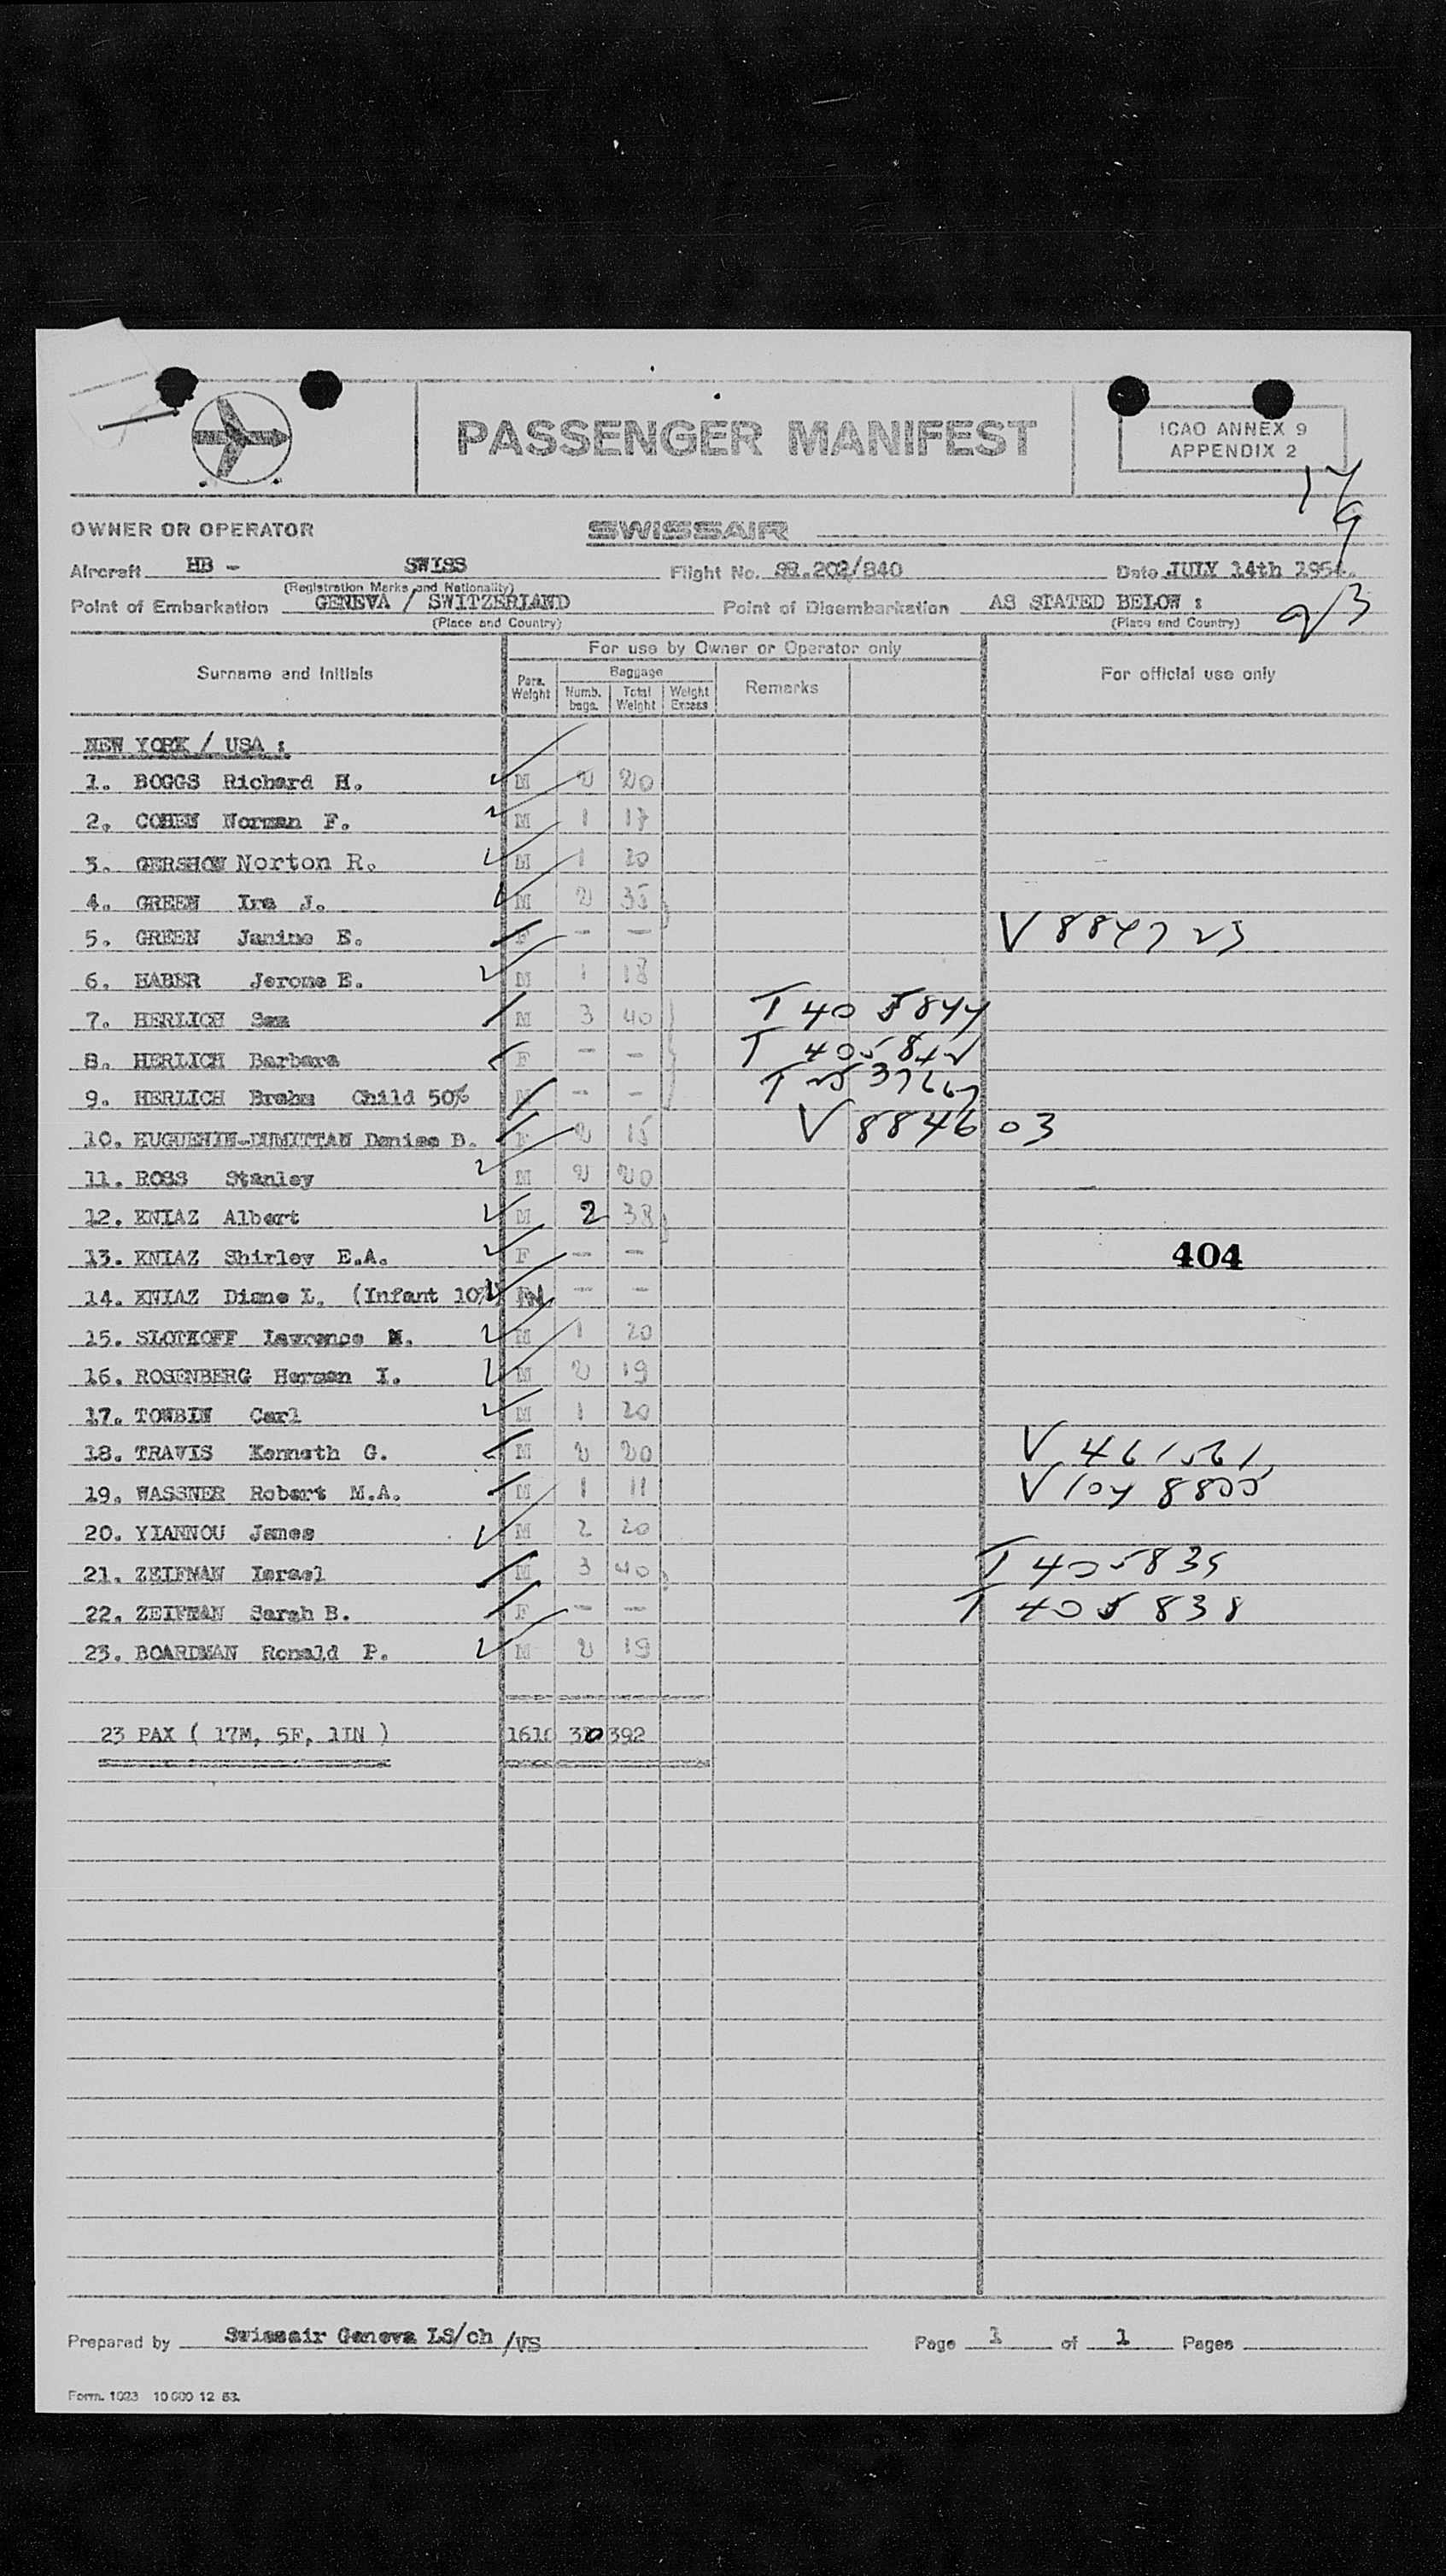 PASSENGER MANIFEST
ICAO ANNEX 9
APPENDIX 2
OWNER OR OPERATOR SWISSAIR
Aircraft HB - SWISS Flight No. SR.202/840 Date JULY 14th 1954.
(Registration Marks and Nationality)
Point of Embarkation GENEVA / SWITZERLAND Point of Disembarkation AS STATED BELOW :
(Place and Country) (Place and Country)
23
Surname and Initials For use by Owner or Operator only For official use only
Pers. Weight Baggage Numb. bags. Total Weight Weight Excess Remarks
NEW YORK / USA :
1. BOGGS Richard H. M 2 20
2. COHEN Norman F. M 1 17
3. GERSHON Norton R. M 1 20
4. GREEN Ira J. M 2 35
5. GREEN Janine E. F - - V 884723
6. HABER Jerome E. M 1 18
7. HERLICH Sam M 3 40 T 405844
8. HERLICH Barbara F - - T 405842
9. HERLICH Brahm Child 50% - -
10. HUGUENIN-DUMITTAN Denise D. F 2 15 V 884603
11. ROSS Stanley M 2 20
12. KNIAZ Albert M 2 38
13. KNIAZ Shirley E.A. F - -
404
14. KNIAZ Diane L. (Infant 10%) - -
15. SLOTKOFF Lawrence M. M 1 20
16. ROSENBERG Herman I. M 2 19
17. TOWBIN Carl M 1 20
18. TRAVIS Kenneth G. M 2 20 V 461561
19. WASSNER Robert M.A. M 1 11
20. YIANNOU James M 2 20
21. ZEIFMAN Israel M 3 40 T 405839
22. ZEIFMAN Sarah B. F - - T 405838
23. BOARDMAN Ronald P. M 2 19
23 PAX ( 17M, 5F, 1IN ) 1610 30 392
Prepared by Swissair Geneva LS/ch /VS Page 1 of 1 Pages
Form. 1023 10 000 12 53.